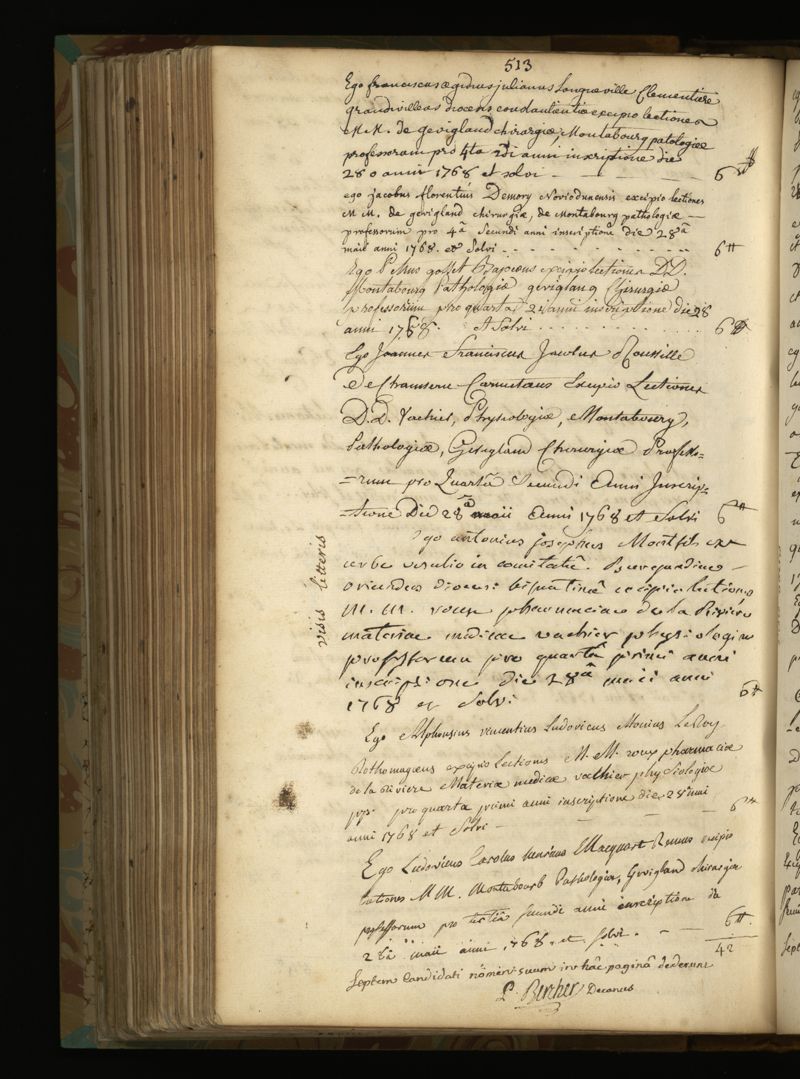 513
Ego franciscus ægidius julianus Longueville Clementiere
grandivilleas diocens constantientiæ excipio lectiones
M.M. de gevigland chirurgiæ, Montabourg patologiæ
professorum pro 4ta 2di anni inscriptione die
28 o anni 1768 et solvi - - - - 6 ₶
ego jacobus florentius Demory Noviodunensis excipio lectiones
M M. de gevigland chirurgiæ, de Montabourg pathologiæ —
professorum pro 4â Secundi anni inscriptione die 28â
maii anni 1768. et Solvi . . . . . . . . . 6 ₶
Ego gosset Bajocæus excipio lectiones D.D.
Montabourg Pathologiæ gevigland Chirurgiæ
professorum pro quarta 2i anni inscriptione die 28
anni 1768. et Solvi . . . . . . . . . 6 ₶
Ego Joannes Franciscus Jacobus
De Carnutæus Excipio Lectiones
D.D. Vachier, Physiologiæ, Montabourg,
Pathologiæ, Gevigland Chirurgiæ Professo=
=rum pro Quartâ Secundi Anni Inscrip=
=tione Die 28â maii Anni 1768 et Solvi 6 ₶
visis litteris
Ego antonius josephus Montfils ex
urbe vesulio in comitatû Burgundiæ
oriundus diocesi bisuntinâ excipio lectiones
M. M. roux pharmaciæ de la Riviere
materiæ medicæ vachier physiologiæ
professorum pro quartâ primi anni
inscriptione die 28â maii anni
1768 et Solvi 6 ₶
Ego Alphonsius vincentius Ludovicus Leroy
Rothomagæus excipio Lectiones M. M. roux pharmaciæ
de la Riviere Materiæ medicæ vachier physiologiæ
pro quarta primi anni inscriptione die 28 maii
anni 1768 et Solvi - - - 6 ₶
Ego Ludovicus Carolus henricus Macquart Remus excipio
lectiones M M. Montabourg Pathologiæ, Gevigland chirurgiæ
professorum pro tertiâ secundi anni inscriptione die
28â maii anni 1768. et solvi . - — 6 ₶.
42
Septem candidati nomen suum in hâc paginâ dederunt
L. Bercher Decanus